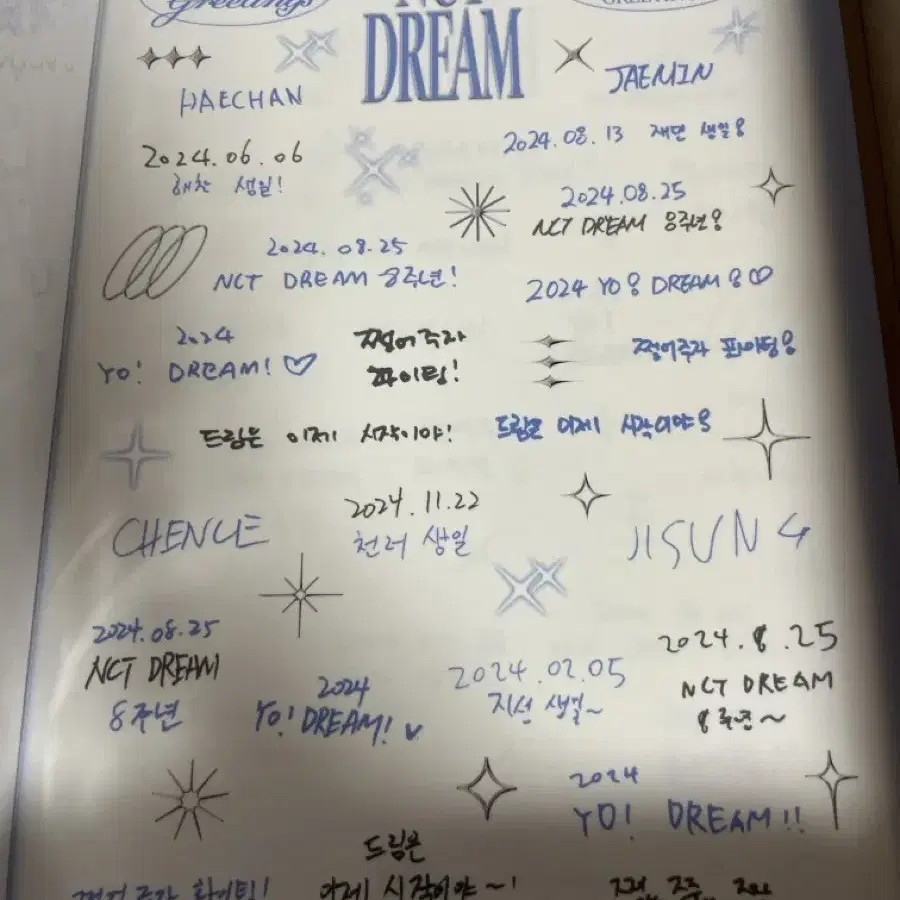 Greetings
NCT
DREAM
HAECHAN
JAEMIN
2024.06.06
해찬 생일!
2024.08.13 재민 생일!
2024.08.25
NCT DREAM 8주년!
2024.08.25
NCT DREAM 8주년!
2024 YO! DREAM! ♡
2024
YO! DREAM! ♡
쩔어주자
파이팅!
쩔어주자 파이팅!
드림은 이제 시작이야!
드림은 이제 시작이야!
CHENLE
2024.11.22
천러 생일
JISUNG
2024.08.25
NCT DREAM
8주년
2024
YO! DREAM!
2024.02.05
지성 생일~
2024.8.25
NCT DREAM
8주년~
2024
YO! DREAM!!
드림은
이제 시작이야~!